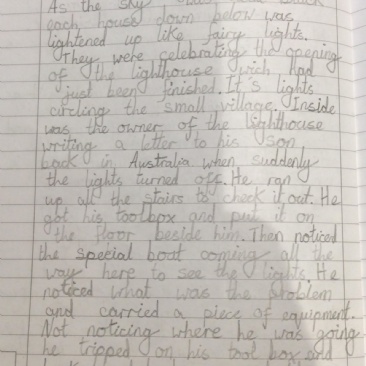 As the sky
each house down below was
lightened up like fairy lights.
They were celebrating the opening
of the lighthouse wich had
just been finished. It,s lights
circling the small village. Inside
was the owner of the lighthouse
writing a letter to his son
back in Australia when suddenly
the lights turned off. He ran
up all the stairs to check it out. He
got his toolbox and put it on
the floor beside him. Then noticed
the special boat coming all the
way here to see the lights. He
noticed what was the problem
and carried a piece of equipment.
Not noticing where he was going
he tripped on his tool box and